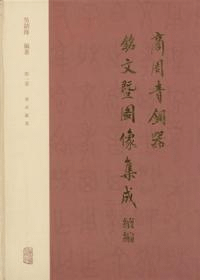 商周青銅器
銘文暨圖像集成
續編
吴鎮烽 編著
第一卷